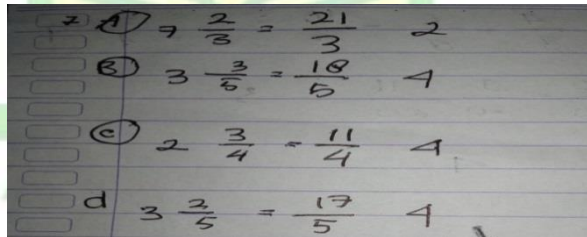 7 A 7 2/3 = 21/3 2
B 3 3/5 = 18/5 4
C 2 3/4 = 11/4 4
d 3 2/5 = 17/5 4